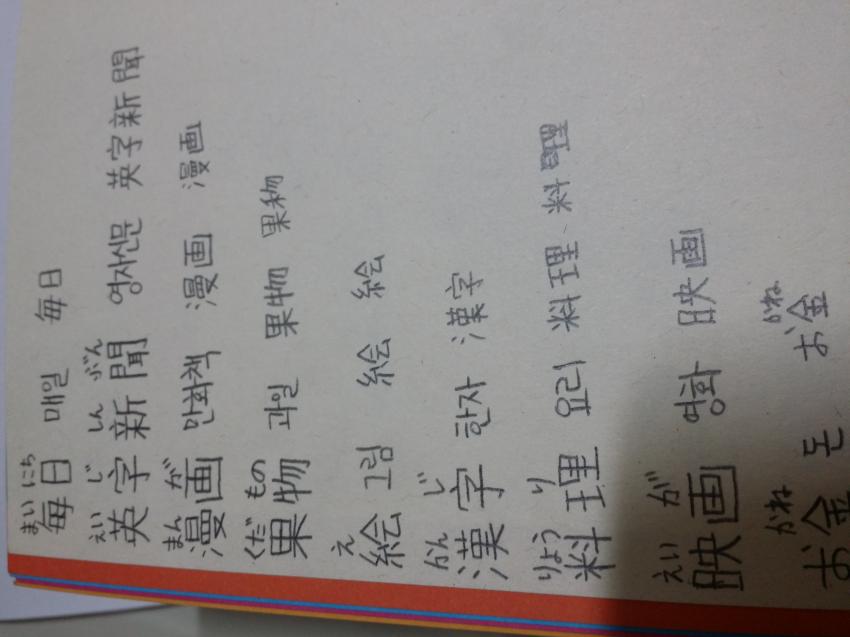 まいにち
毎日 매일 毎日
えいじ しんぶん
英字新聞 영자신문 英字新聞
まんが
漫画 만화책 漫画 漫画
くだもの
果物 과일 果物 果物
え
絵 그림 絵 絵
かんじ
漢字 한자 漢字
りょうり
料理 요리 料理 料理
えいが
映画 영화 映画
かね がね
お金 돈 お金